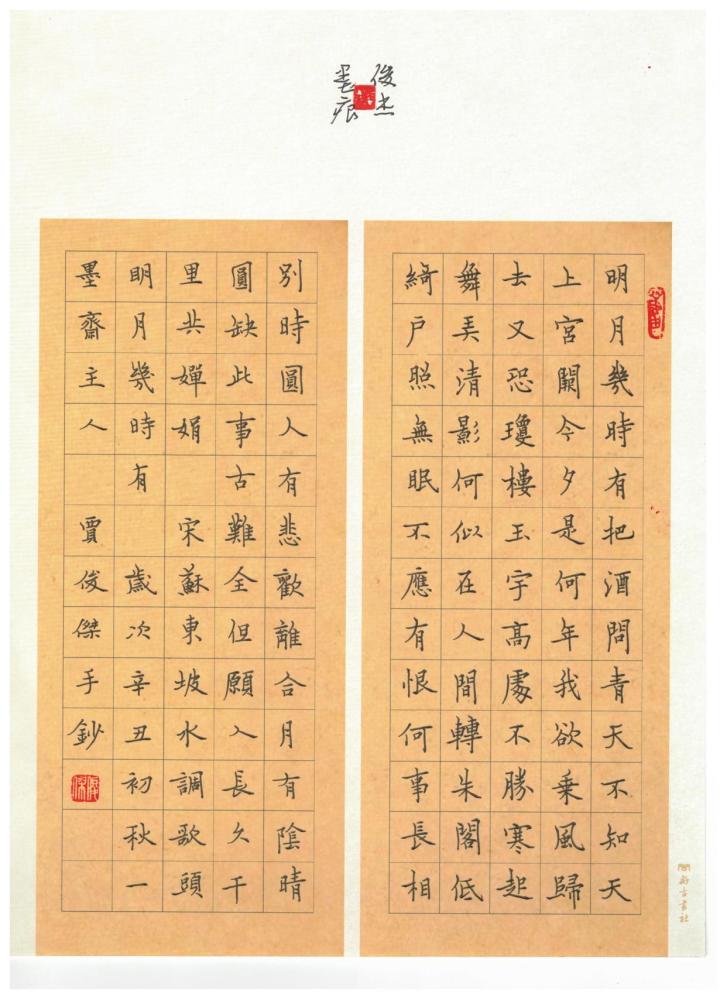 俊杰
墨痕
明月幾時有把酒問青天不知天
上宮闕今夕是何年我欲乘風歸
去又恐瓊樓玉宇高處不勝寒起
舞弄清影何似在人間轉朱閣低
綺戶照無眠不應有恨何事長相
別時圓人有悲歡離合月有陰晴
圓缺此事古難全但願人長久千
里共嬋娟 宋蘇東坡水調歌頭
明月幾時有 歲次辛丑初秋一
墨齋主人 賈俊傑手鈔